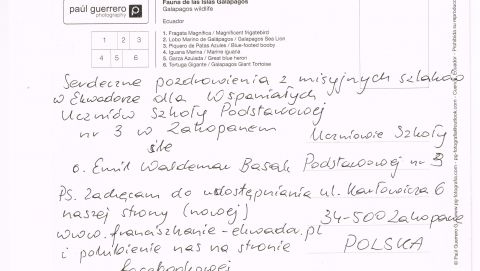 paúl guerrero
photography
1 2 3
4 5 6
Fauna de las Islas Galápagos
Galapagos wildlife
Ecuador
1. Fragata Magnífica / Magnificent frigatebird
2. Lobo Marino de Galápagos / Galapagos Sea Lion
3. Piquero de Patas Azules / Blue-footed booby
4. Iguana Marina / Marine Iguana
5. Garza Azulada / Great blue heron
6. Tortuga Gigante / Galapagos Giant Tortoise
Serdeczne pozdrowienia z misyjnych szlaków
w Ekwadorze dla Wspaniałych
Uczniów Szkoły Podstawowej
nr 3 w Zakopanem
śle
o. Emil Waldemar Basak
PS. Zachęcam do udostępniania
naszej strony (nowej)
www.franciszkanie-ekwador.pl
i polubienie nas na stronie
facebookowej
Uczniowie Szkoły
Podstawowej nr 3
ul. Karłowicza 6
34-500 Zakopane
POLSKA